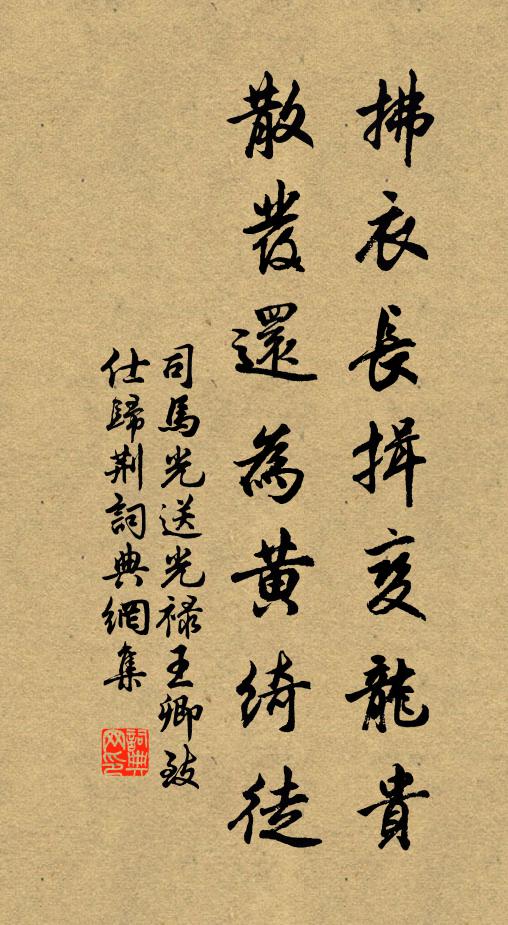 拂衣長揖夔龍貴
散發還為黃綺徒
司馬光送光祿王卿致
仕歸荆詞典網集
詞典
网印